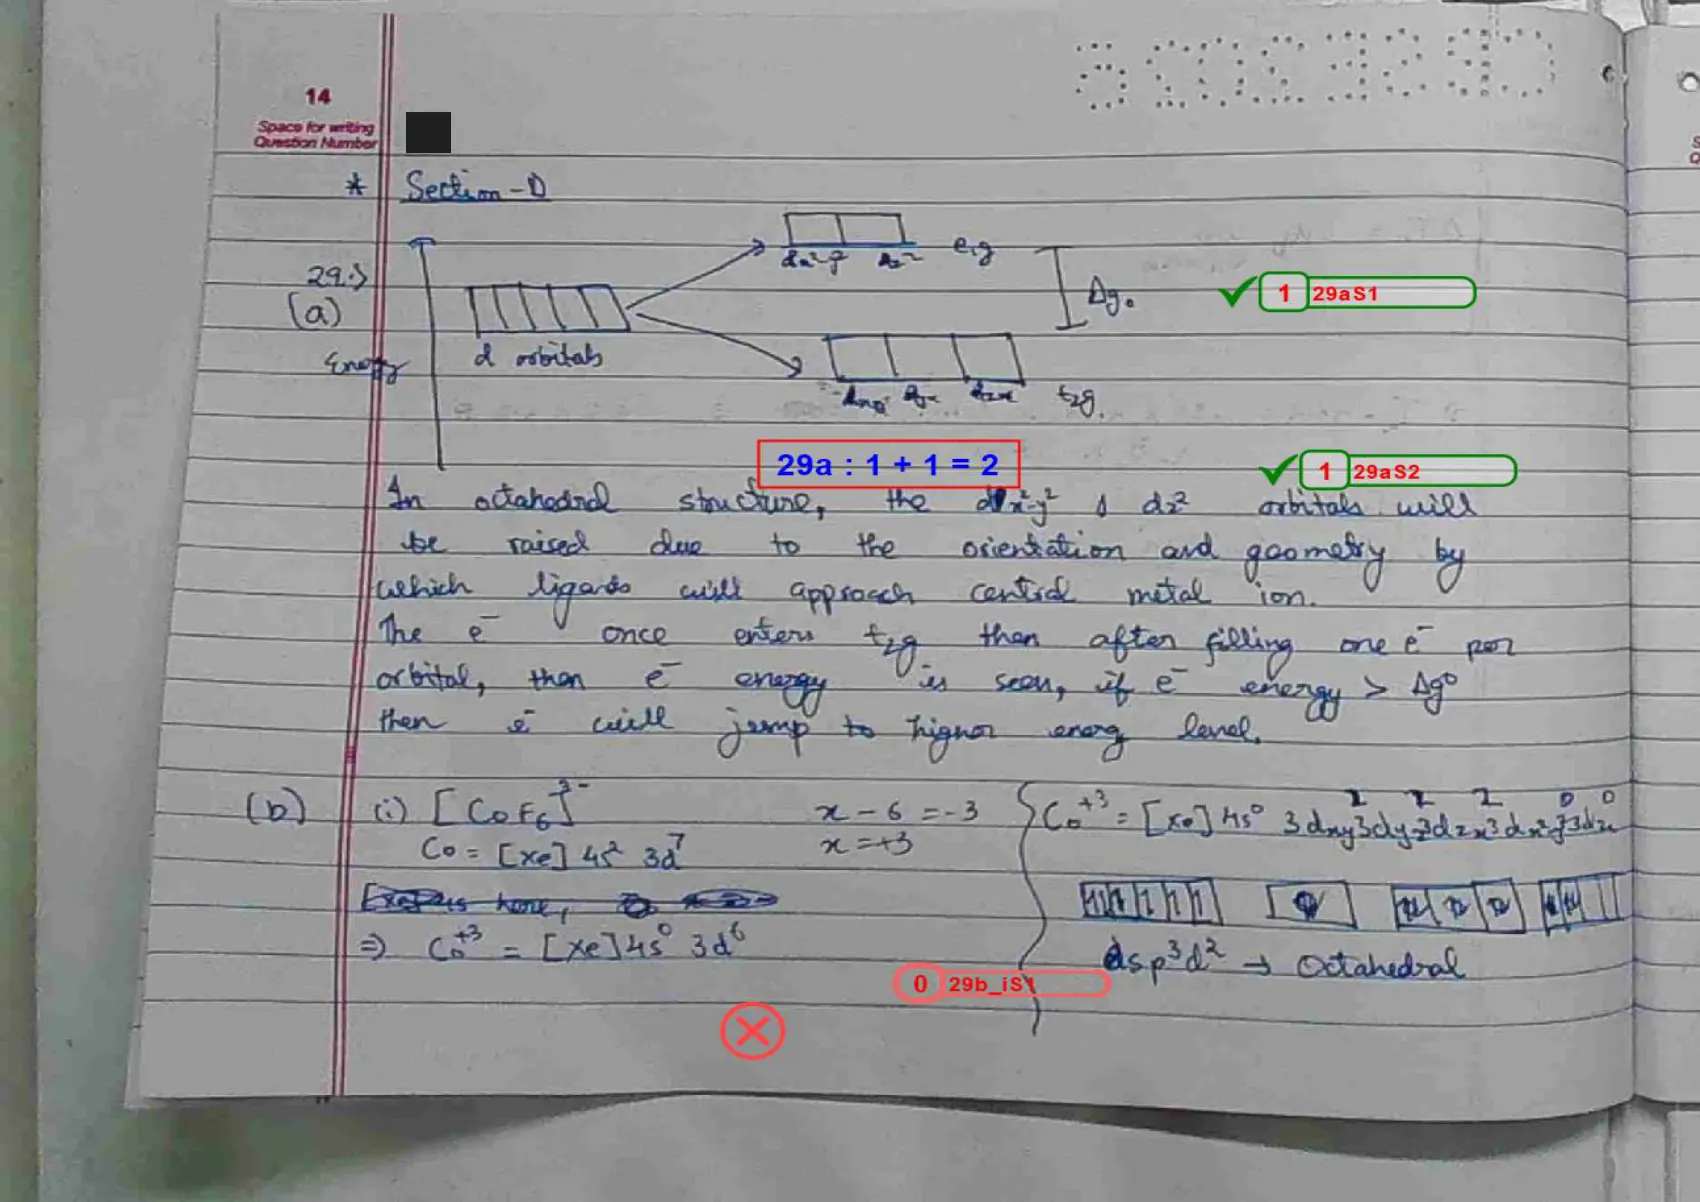 14
Space for writing
Question Number
* Section-D
29.)
(a)
Energy
d orbitals
e,g
Δg₀
t₂g
✓ 1 29aS1
29a : 1 + 1 = 2
✓ 1 29aS2
In octahedral structure, the dx²-y² & dz² orbitals will
be raised due to the orientation and geometry by
which ligands will approach central metal ion.
The e⁻ once enters t₂g then after filling one e⁻ per
orbital, then e⁻ energy is seen, if e⁻ energy > Δg⁰
then e⁻ will jump to higher energ level.
(b) (i) [CoF₆]³⁻ x - 6 = -3
Co = [xe] 4s² 3d⁷ x = +3
⇒ Co⁺³ = [xe] 4s⁰ 3d⁶
Co⁺³ = [xe] 4s⁰
sp³d² → Octahedral
0 29b_iS1